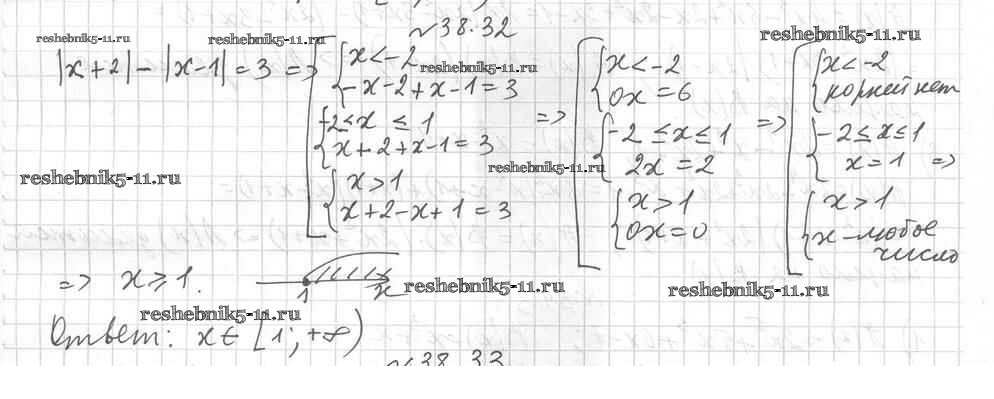 №38.32
reshebnik5-11.ru reshebnik5-11.ru reshebnik5-11.ru
|x+2| - |x-1| = 3 =>
x < -2
-x-2+x-1=3
-2 ≤ x ≤ 1
x+2+x-1=3
x > 1
x+2-x+1=3
=>
x < -2
0x = 6
-2 ≤ x ≤ 1
2x = 2
x > 1
0x = 0
=>
x < -2
корней нет
-2 ≤ x ≤ 1
x = 1 =>
x > 1
x - любое
число
reshebnik5-11.ru
reshebnik5-11.ru
reshebnik5-11.ru
=> x ≥ 1.
1 x
reshebnik5-11.ru
reshebnik5-11.ru
reshebnik5-11.ru
Ответ: x ∈ [1; +∞)
№38.33